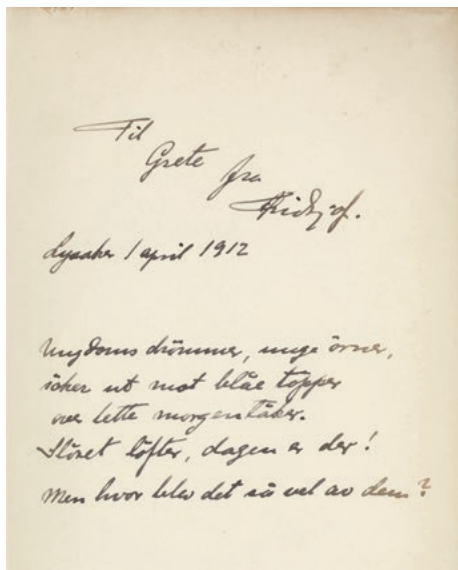 Til
Grete fra
Fridtjof.
Lysaker 1 april 1912
Ungdoms drömmer, unge örner,
söker ut mot blåe topper
over lette morgentåker.
Slöret löfter, dagen er der!
Men hvor blev det så vel av dem?